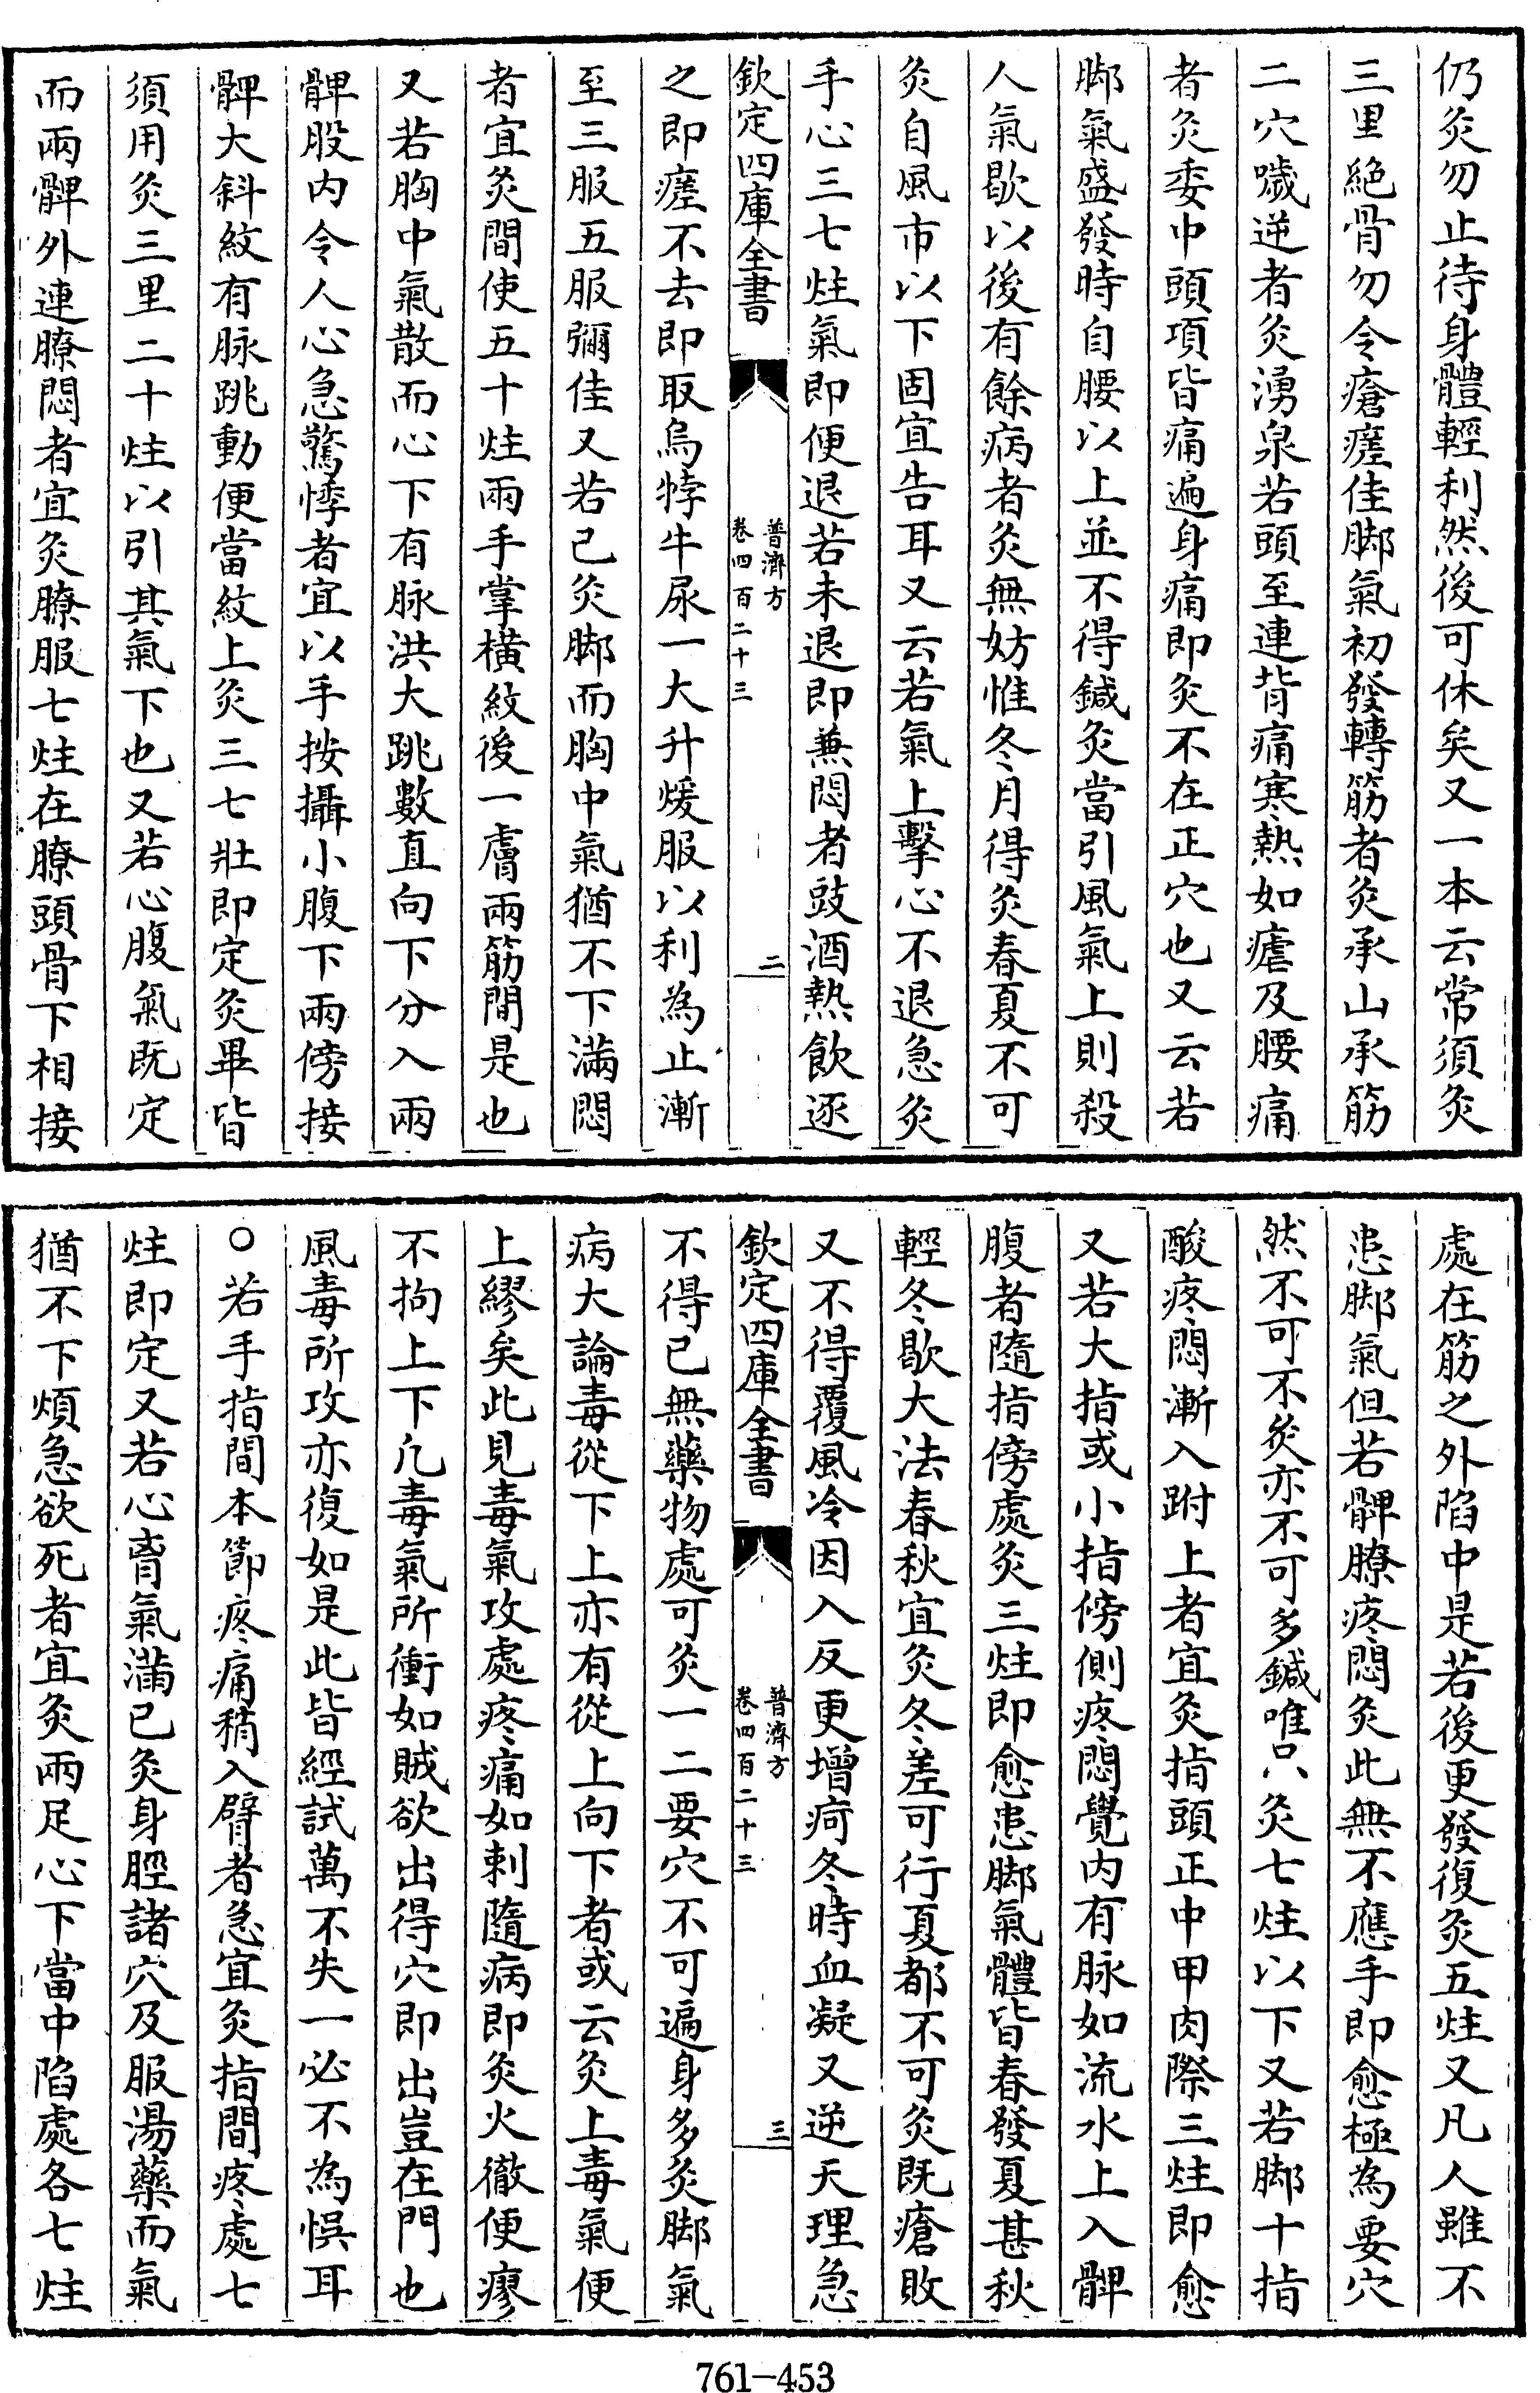 仍灸勿止待身體輕利然後可休矣又一本云常須灸
三里絕骨勿令瘡瘥佳脚氣初發轉筋者灸承山承筋
二穴噦逆者灸湧泉若頭至連背痛寒熱如瘧及腰痛
者灸委中頭項皆痛遍身痛即灸不在正穴也又云若
脚氣盛發時自腰以上並不得鍼灸當引風氣上則殺
人氣歇以後有餘病者灸無妨惟冬月得灸春夏不可
灸自風市以下固宜告耳又云若氣上擊心不退急灸
手心三七炷氣即便退若未退即兼悶者豉酒熱飲逐
欽定四庫全書
普濟方
卷四百二十三
二
之即瘥不去即取烏牸牛尿一大升煖服以利為止漸
至三服五服彌佳又若已灸脚而胸中氣猶不下滿悶
者宜灸間使五十炷兩手掌橫紋後一膚兩筋間是也
又若胸中氣散而心下有脉洪大跳數直向下分入兩
髀股内令人心急驚悸者宜以手按攝小腹下兩傍接
髀大斜紋有脉跳動便當紋上灸三七壯即定灸畢皆
須用灸三里二十炷以引其氣下也又若心腹氣既定
而兩髀外連膫悶者宜灸膫服七炷在膫頭骨下相接
處在筋之外陷中是若後更發復灸五炷又凡人雖不
患脚氣但若髀膫疼悶灸此無不應手即愈極為要穴
然不可不灸亦不可多鍼唯只灸七炷以下又若脚十指
酸疼悶漸入跗上者宜灸指頭正中甲肉際三炷即愈
又若大指或小指傍側疼悶覺内有脉如流水上入髀
腹者隨指傍處灸三炷即愈患脚氣體皆春發夏甚秋
輕冬歇大法春秋宜灸冬差可行夏都不可灸既瘡敗
又不得覆風冷因入反更增疴冬時血凝又逆天理急
欽定四庫全書
普濟方
卷四百二十三
三
不得已無藥物處可灸一二要穴不可遍身多灸脚氣
病大論毒從下上亦有從上向下者或云灸上毒氣便
上繆矣此見毒氣攻處疼痛如刺隨病即灸火徹便瘳
不拘上下凢毒氣所衝如賊欲出得穴即出豈在門也
風毒所攻亦復如是此皆經試萬不失一必不為悞耳
○若手指間本節疼痛稍入臂者急宜灸指間疼處七
炷即定又若心胷氣滿已灸身脛諸穴及服湯藥而氣
猶不下煩急欲死者宜灸兩足心下當中陷處各七炷
761-453